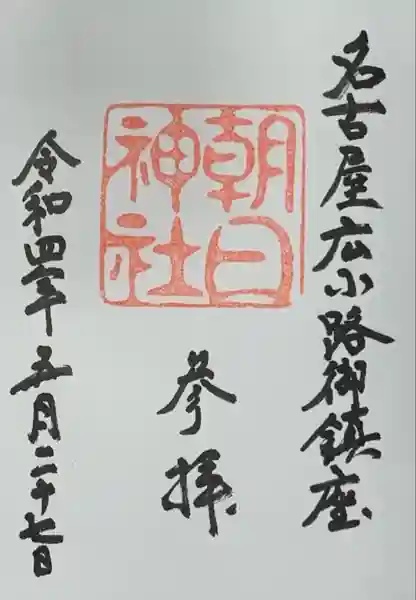 名古屋広小路御鎮座
朝日
神社
参拝
令和四年五月二十七日